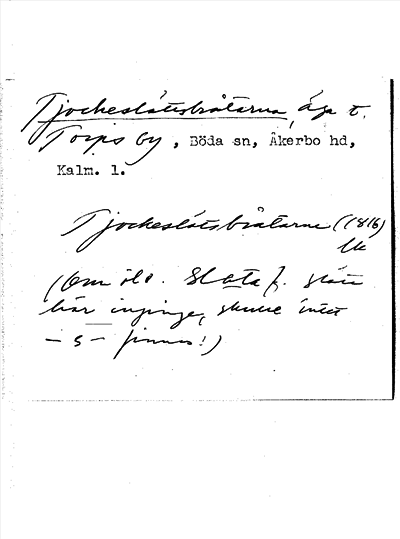 Tjockeslåtsbråtarna, äga t.
Torps by, Böda sn, Åkerbo hd,
Kalm. l.
Tjockeslåtsbråtarne (1816)
(Om öl. Slåta f. slåtter
här inginge, skulle intet
- s - finnas!)